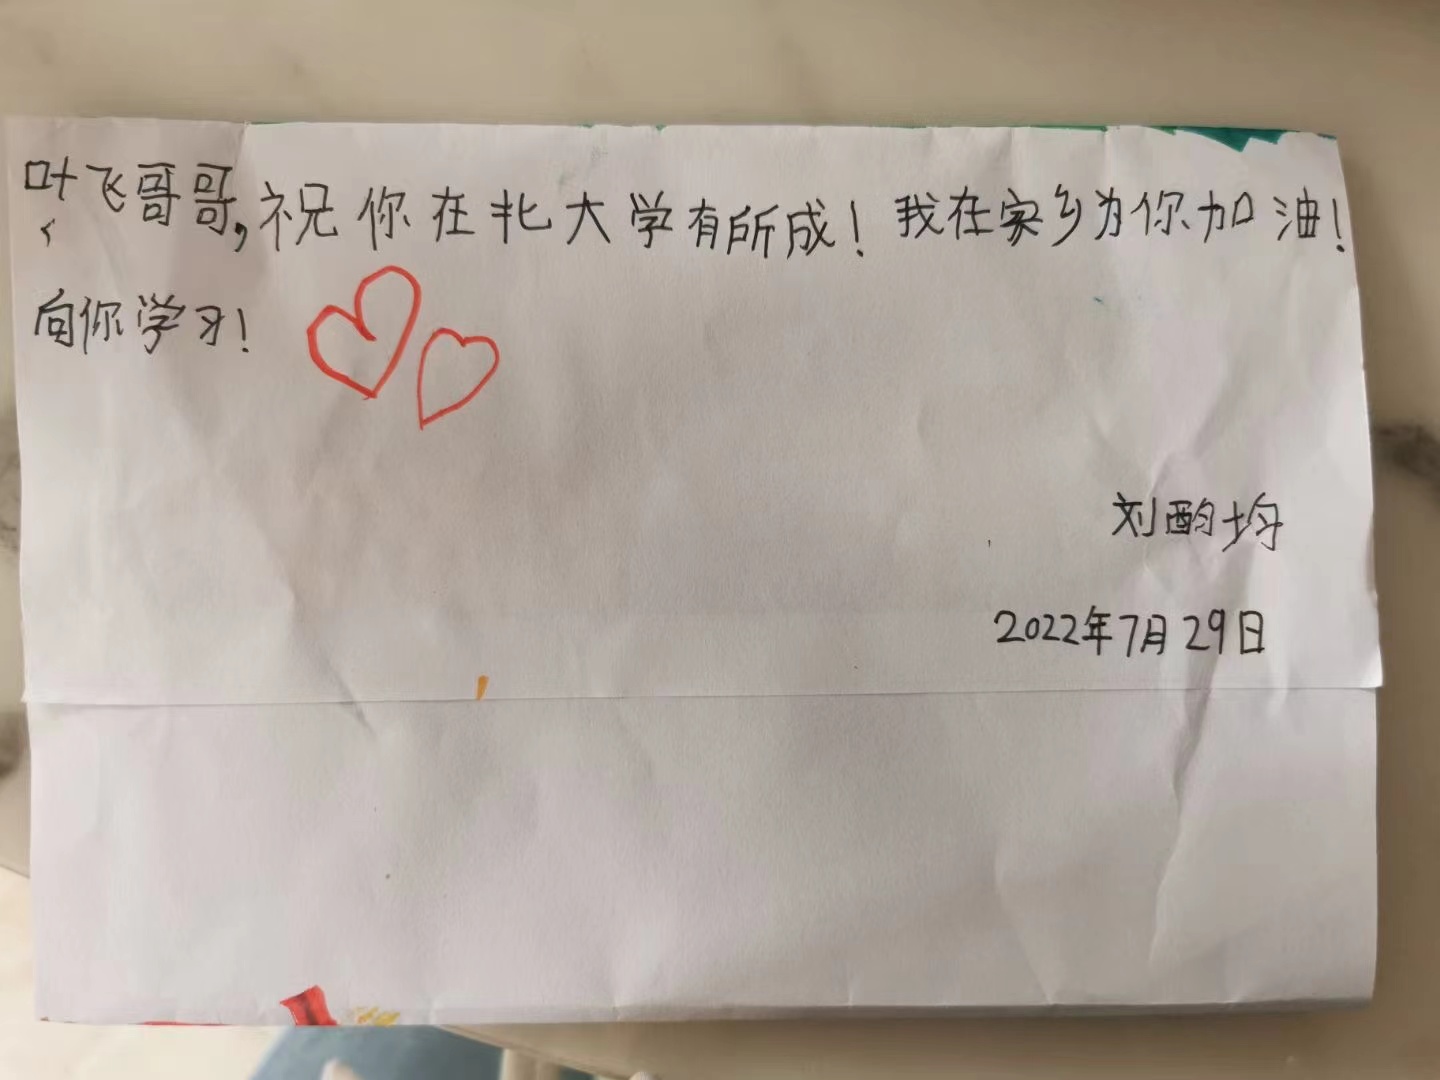 叶飞哥哥,祝你在北大学有所成!我在家乡为你加油!
向你学习!
刘酌均
2022年7月29日